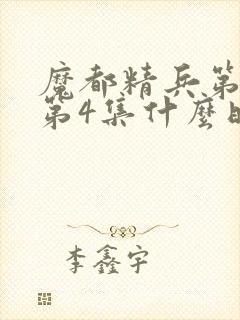 魔都精兵第
第4集什麼時
李鑫宇